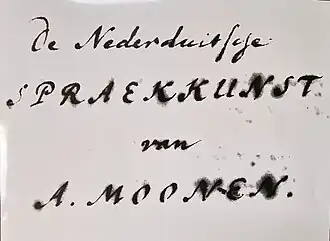 De Nederduitsche
SPRAEKKUNST
van
A. MOONEN.